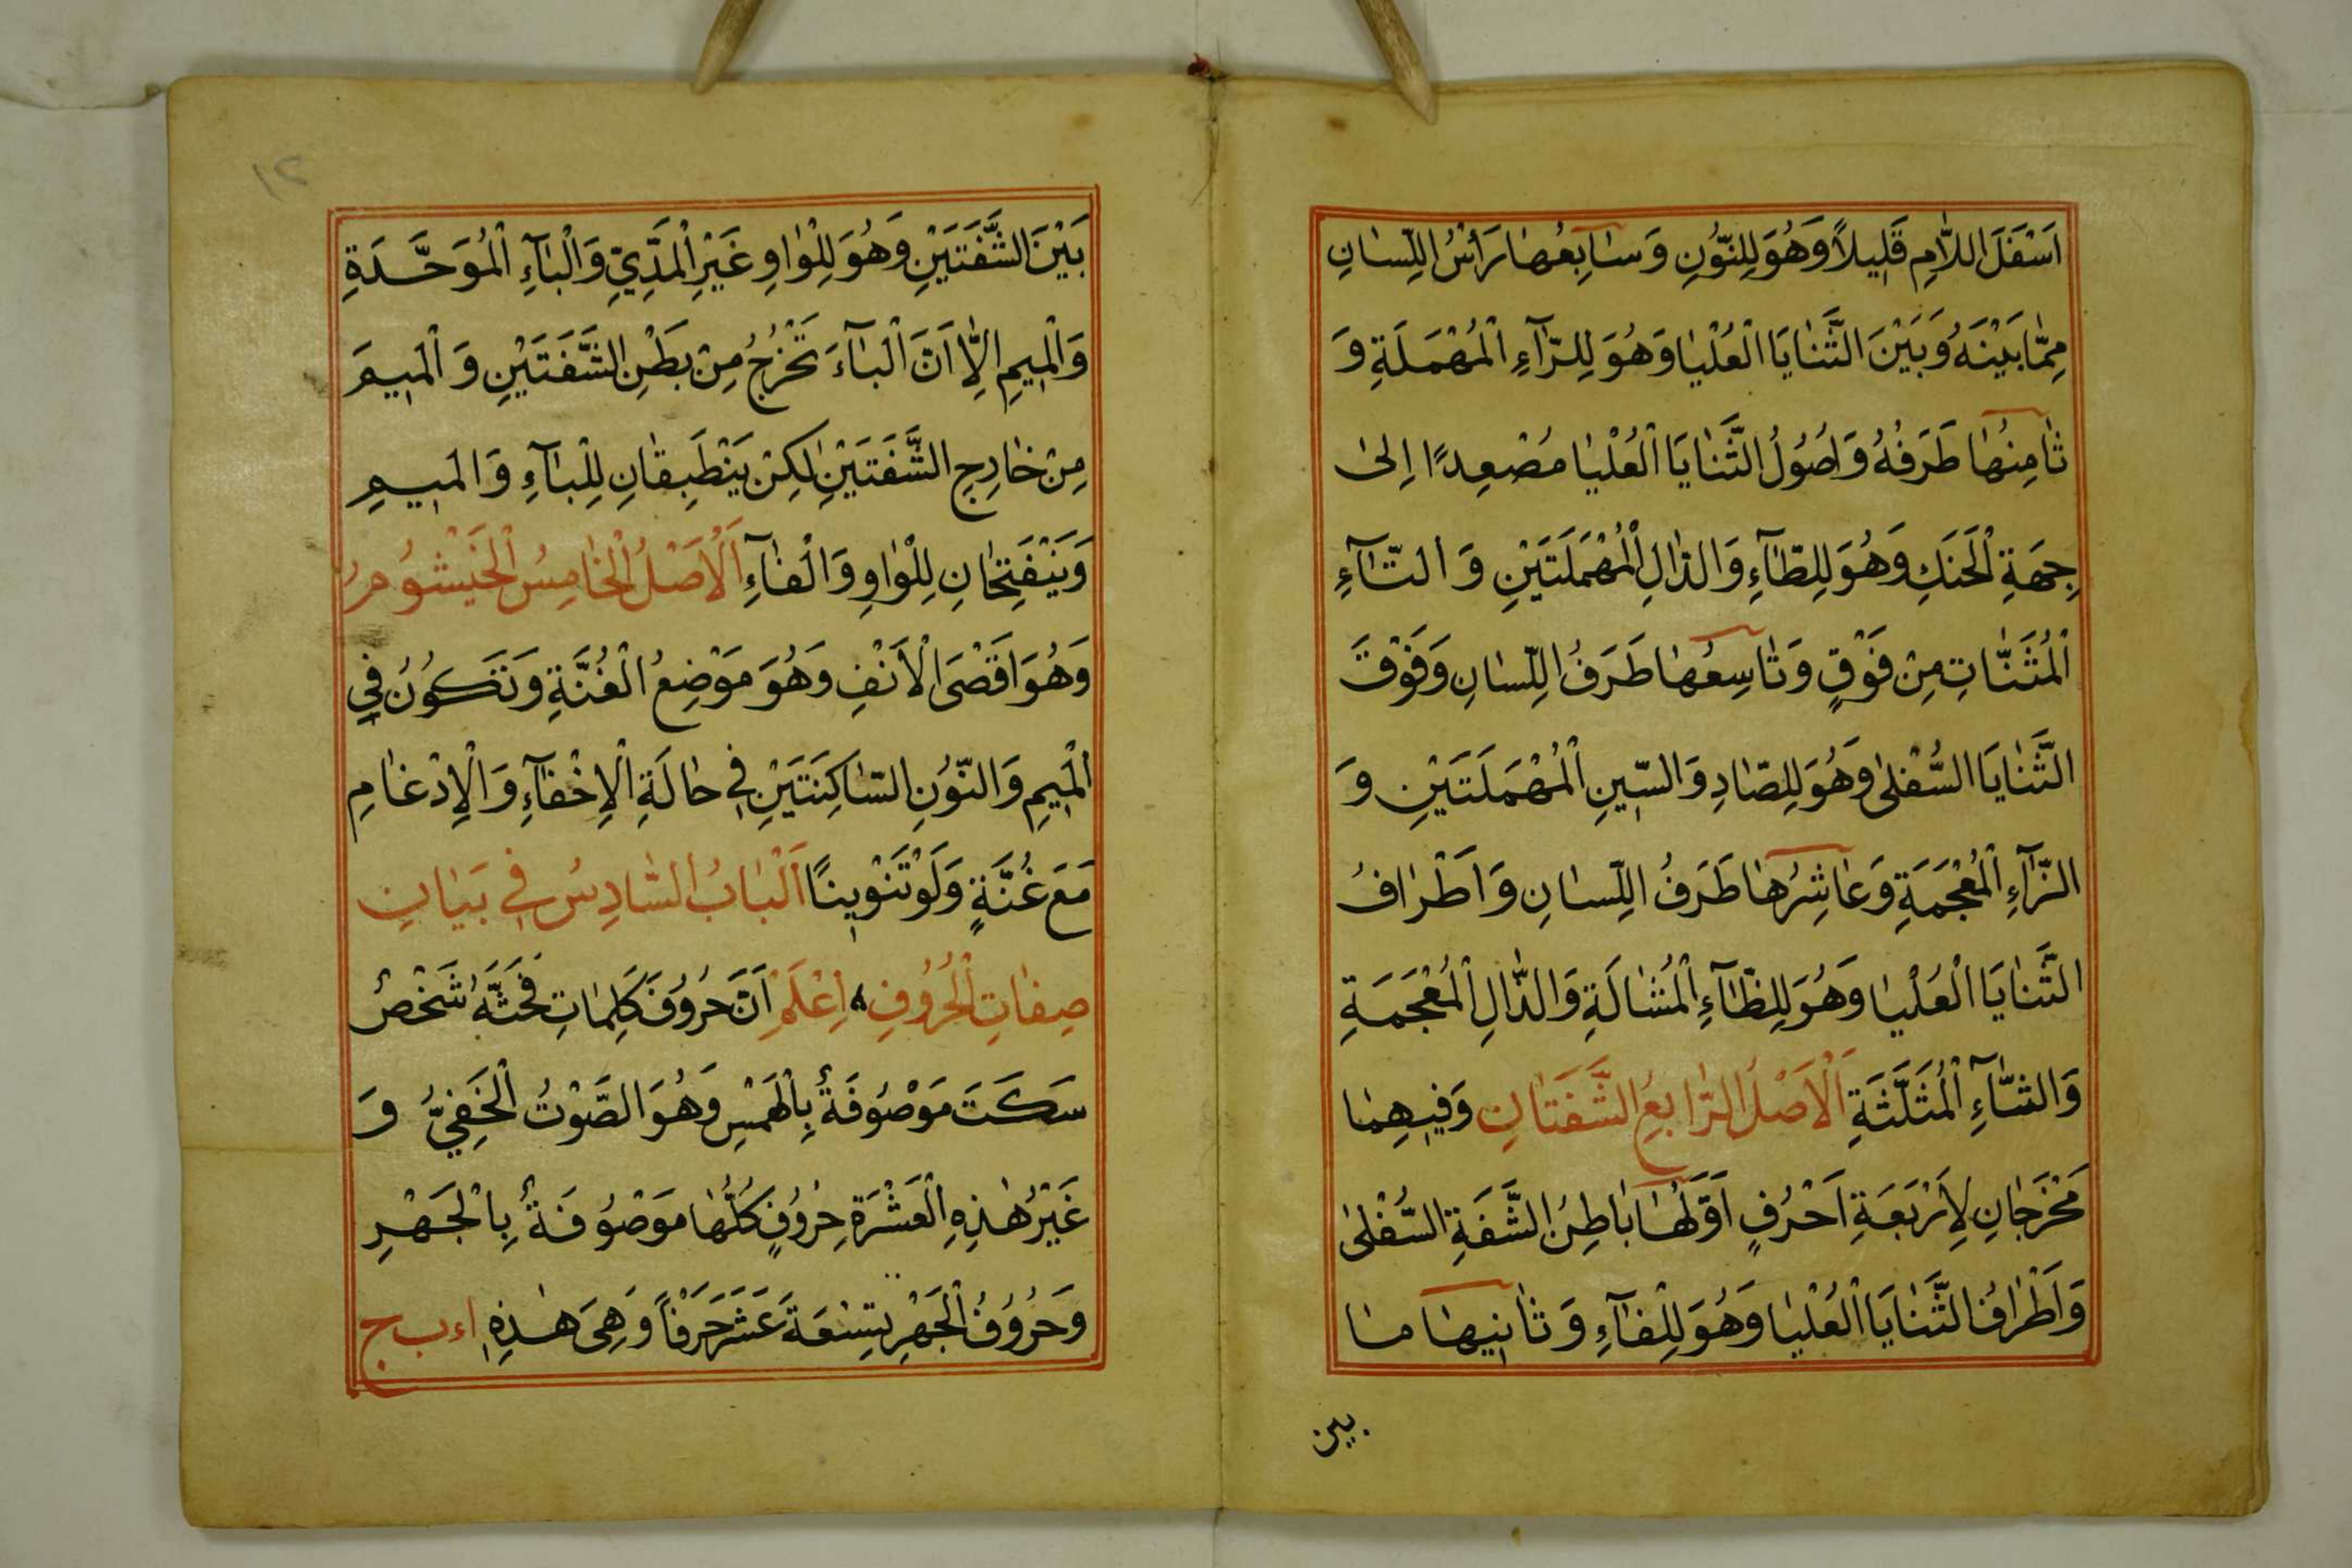 اَسْفَلَ اللَّامِ قَلِيلاً وَهُوَ لِلنُّونِ وَسَابِعُهَا رَأْسُ اللِّسَانِ
مِمَّا بَيْنَهُ وَبَيْنَ الثَّنَايَا الْعُلْيَا وَهُوَ لِلرَّآءِ الْمُهْمَلَةِ وَ
ثَامِنُهَا طَرَفُهُ وَاُصُولُ الثَّنَايَا الْعُلْيَا مُصْعِدًا اِلىٰ
جِهَةِ الْحَنَكِ وَهُوَ لِلطَّآءِ وَالدَّالِ الْمُهْمَلَتَيْنِ وَالتَّآءِ
الْمُثَنَّاتِ مِنْ فَوْقٍ وَتَاسِعُهَا طَرَفُ اللِّسَانِ وَفَوْقَ
الثَّنَايَا السُّفْلىٰ وَهُوَ لِلصَّادِ وَالسِّينِ الْمُهْمَلَتَيْنِ وَ
الزَّآءِ الْمُعْجَمَةِ وَعَاشِرُهَا طَرَفُ اللِّسَانِ وَاَطْرَافُ
الثَّنَايَا الْعُلْيَا وَهُوَ لِلظَّآءِ الْمُشَالَةِ وَالذَّالِ الْمُعْجَمَةِ
وَالثَّآءِ الْمُثَلَّثَةِ اَلْاَصْلُ الرَّابِعُ الشَّفَتَانِ وَفِيهِمَا
مَخْرَجَانِ لِاَرْبَعَةِ اَحْرُفٍ اَوَّلُهَا بَاطِنُ الشَّفَةِ السُّفْلىٰ
وَاَطْرَافُ الثَّنَايَا الْعُلْيَا وَهُوَ لِلْفَآءِ وَثَانِيهَا مَا
بين
١٢
بَيْنَ الشَّفَتَيْنِ وَهُوَ لِلْوَاوِ غَيْرِ الْمَدِّيِّ وَالْبَآءِ الْمُوَحَّدَةِ
وَالْمِيمِ اِلَّا اَنَّ الْبَآءَ تَخْرُجُ مِنْ بَطْنِ الشَّفَتَيْنِ وَالْمِيمَ
مِنْ خَارِجِ الشَّفَتَيْنِ لٰكِنْ يَنْطَبِقَانِ لِلْبَآءِ وَالْمِيمِ
وَيَنْفَتِحَانِ لِلْوَاوِ وَالْفَآءِ اَلْاَصْلُ الْخَامِسُ الْخَيْشُومُ
وَهُوَ اَقْصَى الْاَنْفِ وَهُوَ مَوْضِعُ الْغُنَّةِ وَتَكُونُ فِي
الْمِيمِ وَالنُّونِ السَّاكِنَتَيْنِ فِي حَالَةِ الْاِخْفَآءِ وَالْاِدْغَامِ
مَعَ غُنَّةٍ وَلَوْ تَنْوِينًا اَلْبَابُ السَّادِسُ فِي بَيَانِ
صِفَاتِ الْحُرُوفِ اِعْلَمْ اَنَّ حُرُوفَ كَلِمَاتِ فَحَثَّهُ شَخْصٌ
سَكَتَ مَوْصُوفَةٌ بِالْهَمْسِ وَهُوَ الصَّوْتُ الْخَفِيُّ وَ
غَيْرُ هٰذِهِ الْعَشْرَةِ حُرُوفٍ كُلُّهَا مَوْصُوفَةٌ بِالْجَهْرِ
وَحُرُوفُ الْجَهْرِ تِسْعَةَ عَشَرَ حَرْفًا وَهِيَ هٰذِهِ اء ب ج